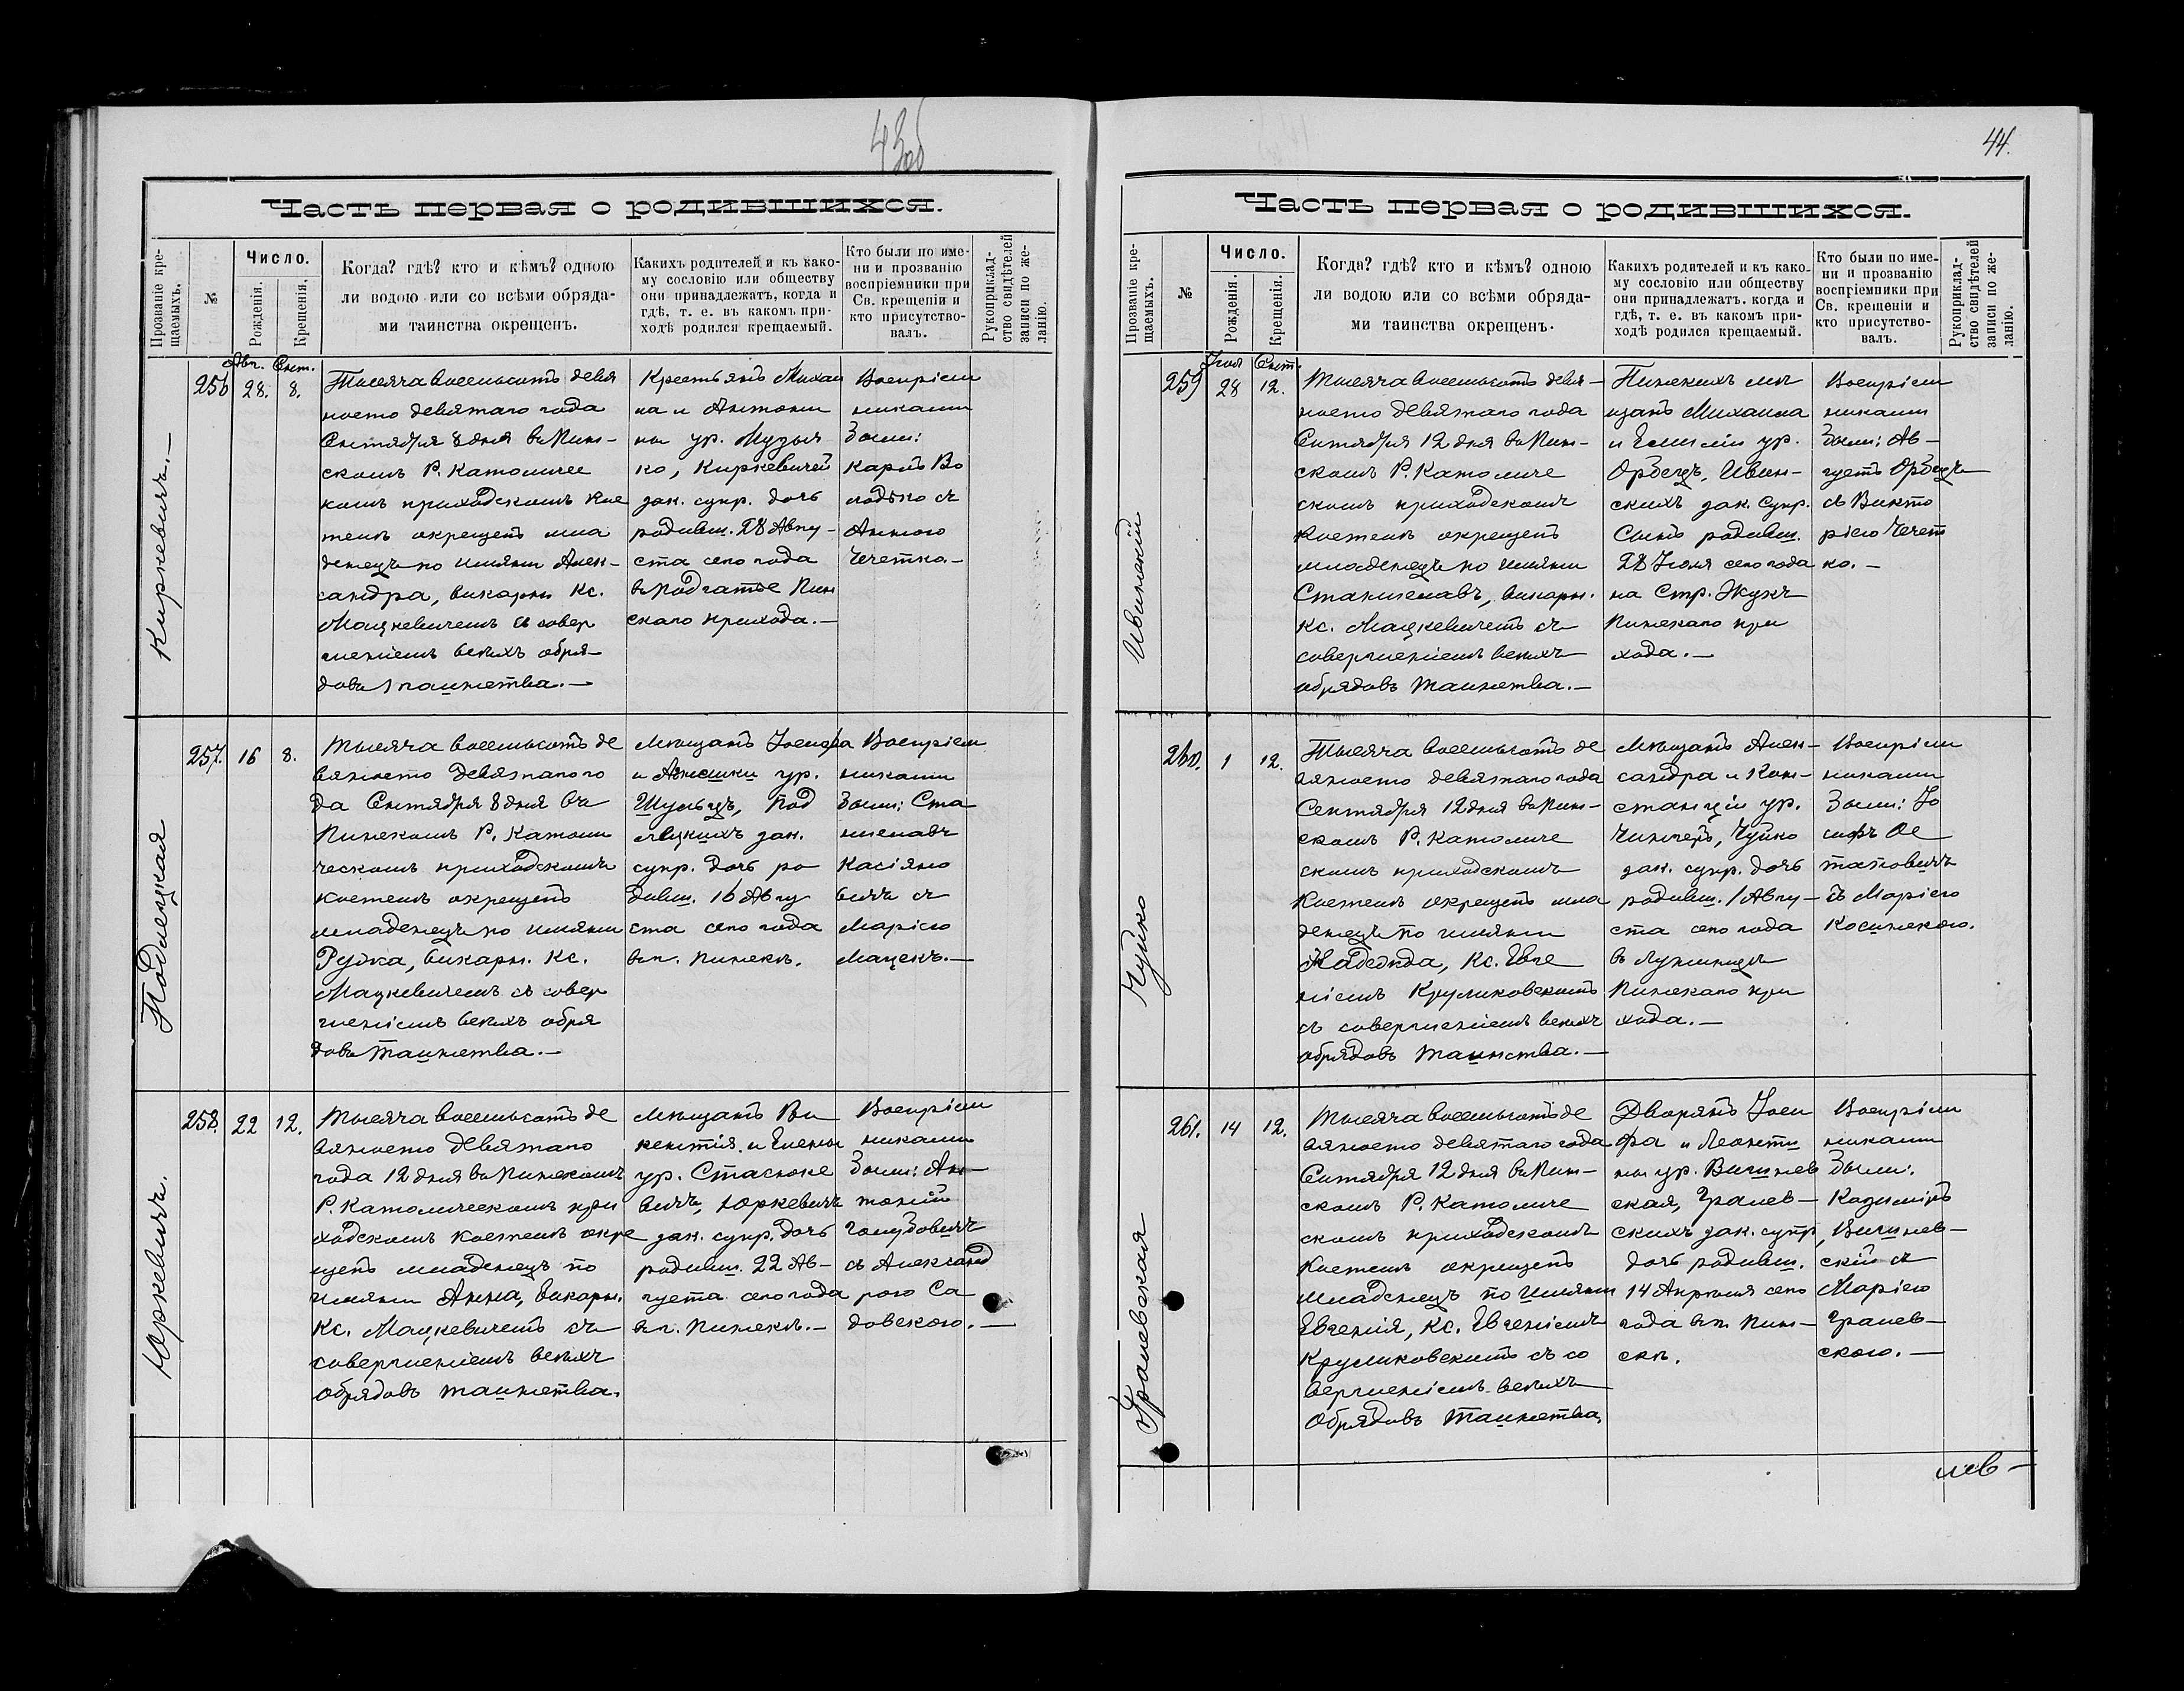 43об
Часть первая о родившихся.
Прозваніе кре-
щаемыхъ.
№
Число.
Рожденія.
Крещенія.
Когда? гдѣ? кто и кѣмъ? одною
ли водою или со всѣми обряда-
ми таинства окрещенъ.
Какихъ родителей и къ како-
му сословію или обществу
они принадлежатъ, когда и
гдѣ, т. е. въ какомъ при-
ходѣ родился крещаемый.
Кто были по име-
ни и прозванію
воспріемники при
Св. крещеніи и
кто присутство-
валъ.
Рукоприклад-
ство свидѣтелей
записи по же-
ланію.
Киркевичъ.—
256
Авг. Сент.
28. 8.
Тысяча восемьсотъ девя
носто девятаго года
Сентября 8 дня въ Пин-
скомъ Р. Католичес
комъ приходскомъ Кос
телѣ окрещенъ мла
денецъ по имяни Алек-
сандра, викарн. Кс.
Мацкевичемъ съ совер
шеніемъ всѣхъ обря-
довъ таинства.—
Крестьянъ Михаи
ла и Антони
ны ур. Музыч
ко, Киркевичей
зак. супр. дочь
родивш. 28 Авгу-
ста сего года
въ Подгатье Пин
скаго прихода.—
Воспріем
никами
были:
Карпъ Во
лодько съ
Анною
Чечетко.—
Подлецкая
257. 16 8.
Тысяча восемьсотъ де
вяносто девятаго го
да Сентября 8 дня въ
Пинскомъ Р. Католи
ческомъ приходскомъ
костелѣ окрещенъ
младенецъ по имяни
Руфка, викарн. Кс.
Мацкевичемъ съ совер
шеніемъ всѣхъ обря
довъ таинства.—
Мѣщанъ Іосифа
и Агнешки ур.
Шульцъ, Под
лецкихъ зак.
супр. дочь ро
дивш. 16 Авгу
ста сего года
въ г. Пинскѣ.
Воспріем
никами
были: Ста
ниславъ
Касіяно
вичъ съ
Маріею
Мацекъ.—
Юркевичъ.
258. 22 12.
Тысяча восемьсотъ де
вяносто девятаго
года 12 дня въ Пинскомъ
Р. Католическомъ при
ходскомъ костелѣ окре
щенъ младенецъ по
имяни Анна, викарн.
Кс. Мацкевичемъ съ
совершеніемъ всѣхъ
обрядовъ таинства.
Мѣщанъ Ви
кентія и Елены
ур. Стаснюке
вичъ, Юркевичъ
зак. супр. дочь
родивш. 22 Ав-
густа сего года
въ г. Пинскѣ.—
Воспріем
никами
были: Ан-
тоній
Голубовичъ
съ Александ
рою Са
довскою.—
44.
Часть первая о родившихся.
Прозваніе кре-
щаемыхъ.
№
Число.
Рожденія.
Крещенія.
Когда? гдѣ? кто и кѣмъ? одною
ли водою или со всѣми обряда-
ми таинства окрещенъ.
Какихъ родителей и къ како-
му сословію или обществу
они принадлежатъ. когда и
гдѣ, т. е. въ какомъ при-
ходѣ родился крещаемый.
Кто были по име-
ни и прозванію
воспріемники при
Св. крещеніи и
кто присутство-
валъ.
Рукоприклад-
ство свидѣтелей
записи по же-
ланію.
Ивинскій
259
Іюля Сент.
28 12.
Тысяча восемьсотъ девя-
носто девятаго года
Сентября 12 дня въ Пин-
скомъ Р. Католиче
скомъ приходскомъ
Костелѣ окрещенъ
младенецъ по имяни
Станиславъ, викарн.
Кс. Мацкевичемъ съ
совершеніемъ всѣхъ
обрядовъ таинства.—
Пинскихъ мѣ
щанъ Михаила
и Емиліи ур.
Орбецъ, Ивин-
скихъ зак. супр.
сынъ родивш.
28 Іюля сего года
на Стр. Жукъ
Пинскаго при
хода.—
Воспріем
никами
были: Ав-
густъ Орбецъ
съ Викто
ріею Чечет
ко.—
Чуйко
260. 1 12.
Тысяча восемьсотъ де
вяносто девятаго года
Сентября 12 дня въ Пин-
скомъ Р. Католиче
скомъ приходскомъ
Костелѣ окрещенъ мла
денецъ по имяни
Надежда, Кс. Евге
ніемъ Круликовскимъ
съ совершеніемъ всѣхъ
обрядовъ таинства.—
Мѣщанъ Алек-
сандра и Кон-
станціи ур.
Чинчеръ, Чуйко
зак. супр. дочь
родивш. 1 Авгу-
ста сего года
въ Лунинцѣ
Пинскаго при
хода.—
Воспріем
никами
были: Іо
сифъ Ос
таповичъ
съ Маріею
Косинскою.
Гралевская
261. 14 12.
Тысяча восемьсотъ де
вяносто девятаго года
Сентября 12 дня въ Пин-
скомъ Р. Католиче
скомъ приходскомъ
Костелѣ окрещенъ
младенецъ по имяни
Евгенія, Кс. Евгеніемъ
Круликовскимъ съ со
вершеніемъ всѣхъ
обрядовъ таинства.
Дворянъ Іоси
фа и Леонти
ны ур. Вишнев
ская, Гралев-
скихъ зак. супр.
дочь родивш.
14 Апрѣля сего
года въ г. Пин-
скѣ.
Воспріем
никами
были:
Казиміръ
Вишнев-
скій съ
Маріею
Гралев-
скою.—
лев-